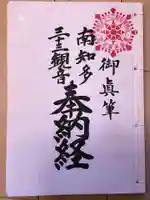 御真筆
南知多
三十三観音
奉納経